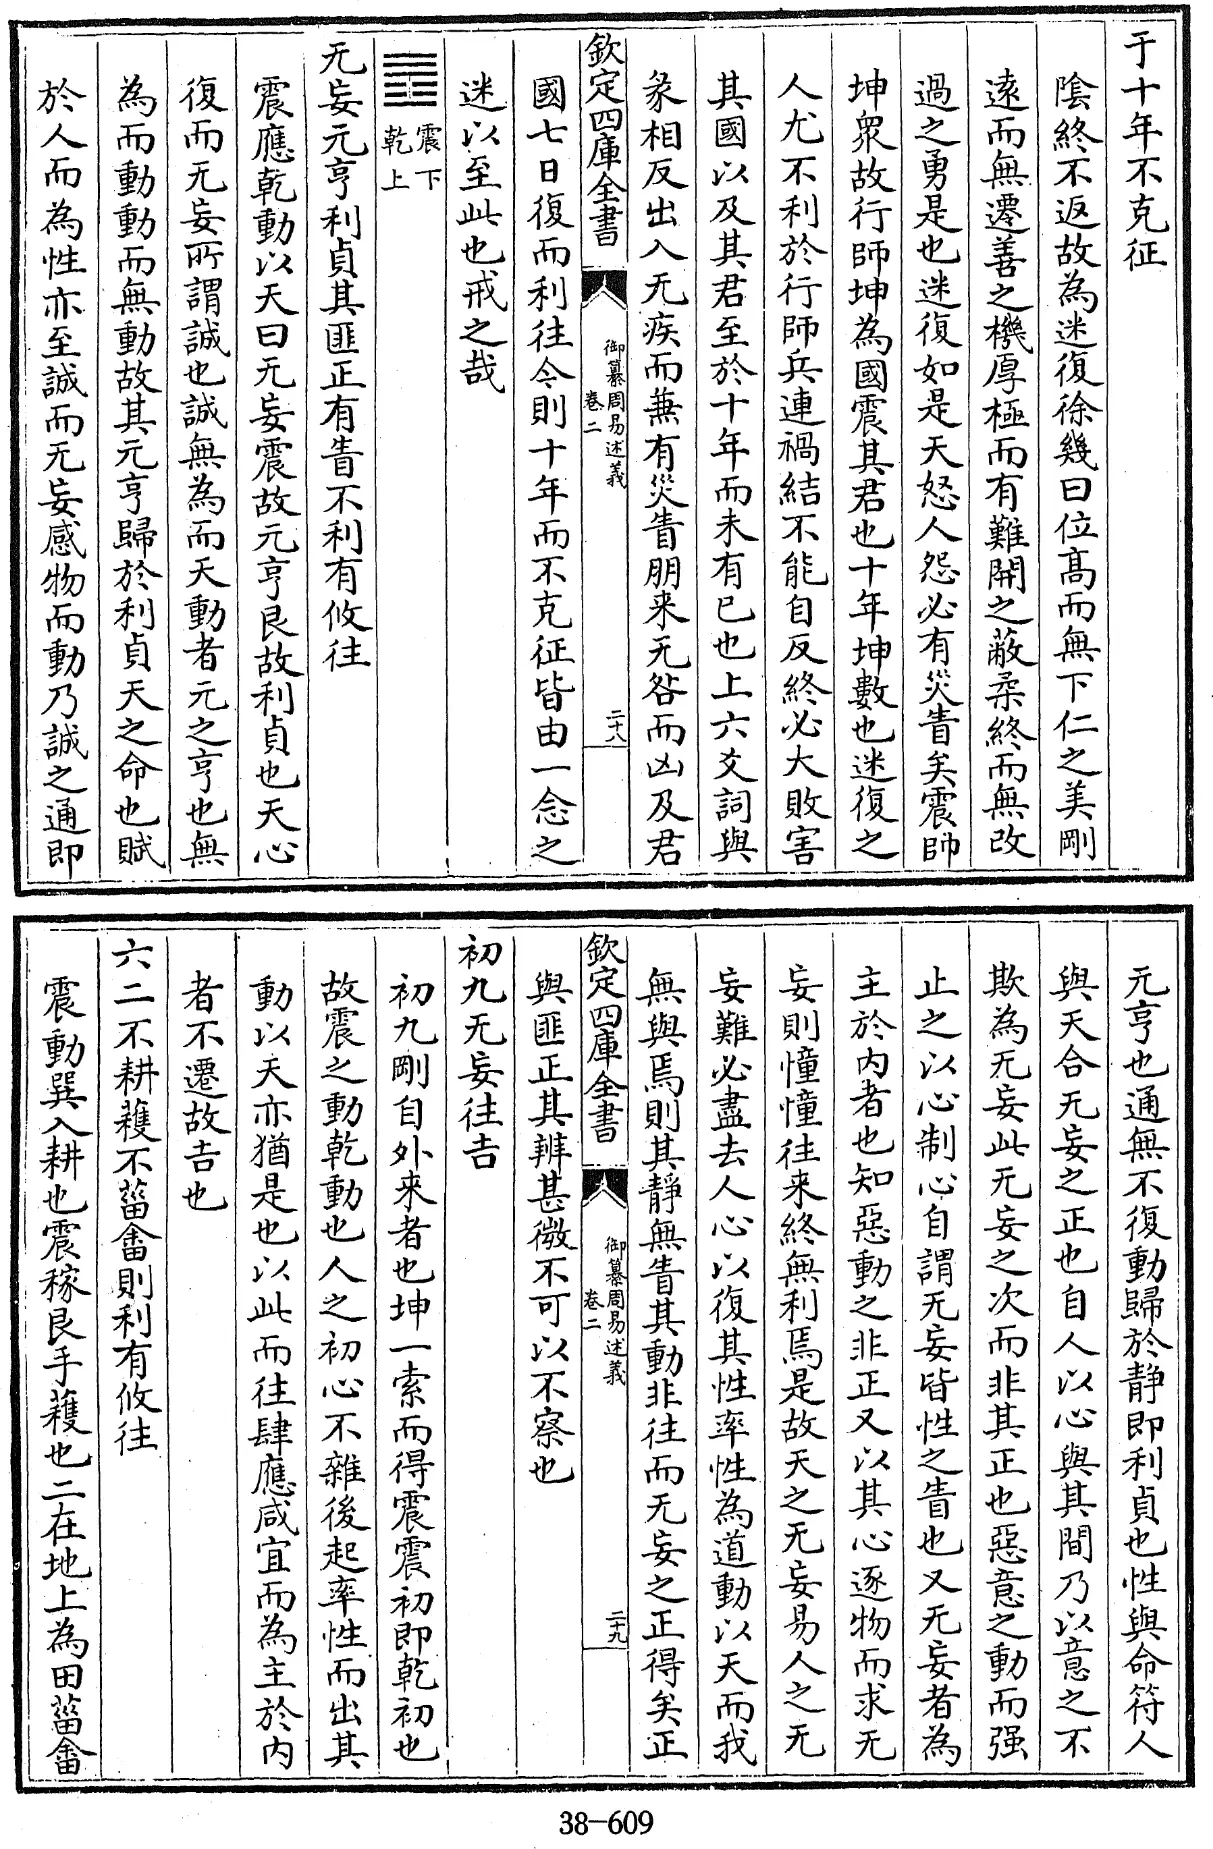 于十年不克征
陰終不返故為迷復徐幾曰位髙而無下仁之美剛
逺而無遷善之機厚極而有難開之蔽柔終而無改
過之勇是也迷復如是天怒人怨必有災眚矣震帥
坤衆故行師坤為國震其君也十年坤數也迷復之
人尤不利於行師兵連禍結不能自反終必大敗害
其國以及其君至於十年而未有已也上六爻詞與
彖相反出入无疾而兼有災眚朋来无咎而凶及君
欽定四庫全書
御纂周易述義
卷二
二十八
國七日復而利往今則十年而不克征皆由一念之
迷以至此也戒之哉
䷘
震下
乾上
无妄元亨利貞其匪正有眚不利有攸往
震應乾動以天曰无妄震故元亨艮故利貞也天心
復而无妄所謂誠也誠無為而天動者元之亨也無
為而動動而無動故其元亨歸於利貞天之命也賦
於人而為性亦至誠而无妄感物而動乃誠之通即
元亨也通無不復動歸於静即利貞也性與命符人
與天合无妄之正也自人以心與其間乃以意之不
欺為无妄此无妄之次而非其正也惡意之動而强
止之以心制心自謂无妄皆性之眚也又无妄者為
主於内者也知惡動之非正又以其心逐物而求无
妄則憧憧往来終無利焉是故天之无妄易人之无
妄難必盡去人心以復其性率性為道動以天而我
無與焉則其靜無眚其動非往而无妄之正得矣正
欽定四庫全書
御纂周易述義
卷二
二十九
與匪正其辨甚微不可以不察也
初九无妄往吉
初九剛自外来者也坤一索而得震震初即乾初也
故震之動乾動也人之初心不雜後起率性而出其
動以天亦猶是也以此而往肆應咸宜而為主於内
者不遷故吉也
六二不耕穫不菑畬則利有攸往
震動巽入耕也震稼艮手穫也二在地上為田菑畬
38-609